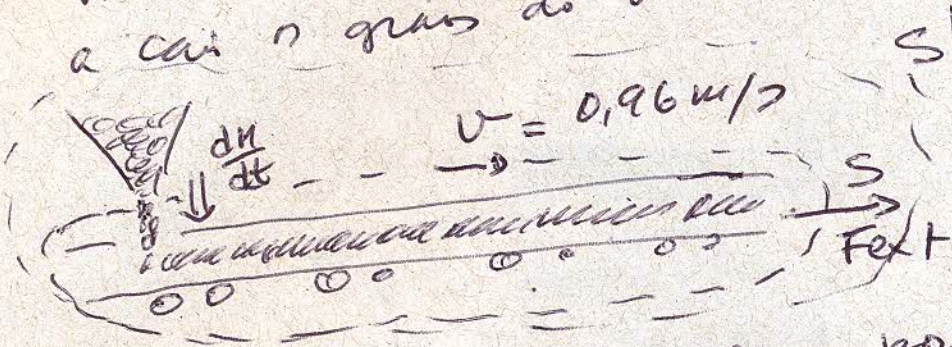 a cai n grãos do
S
dM
dt
v = 0,96 m/s
S
Fext